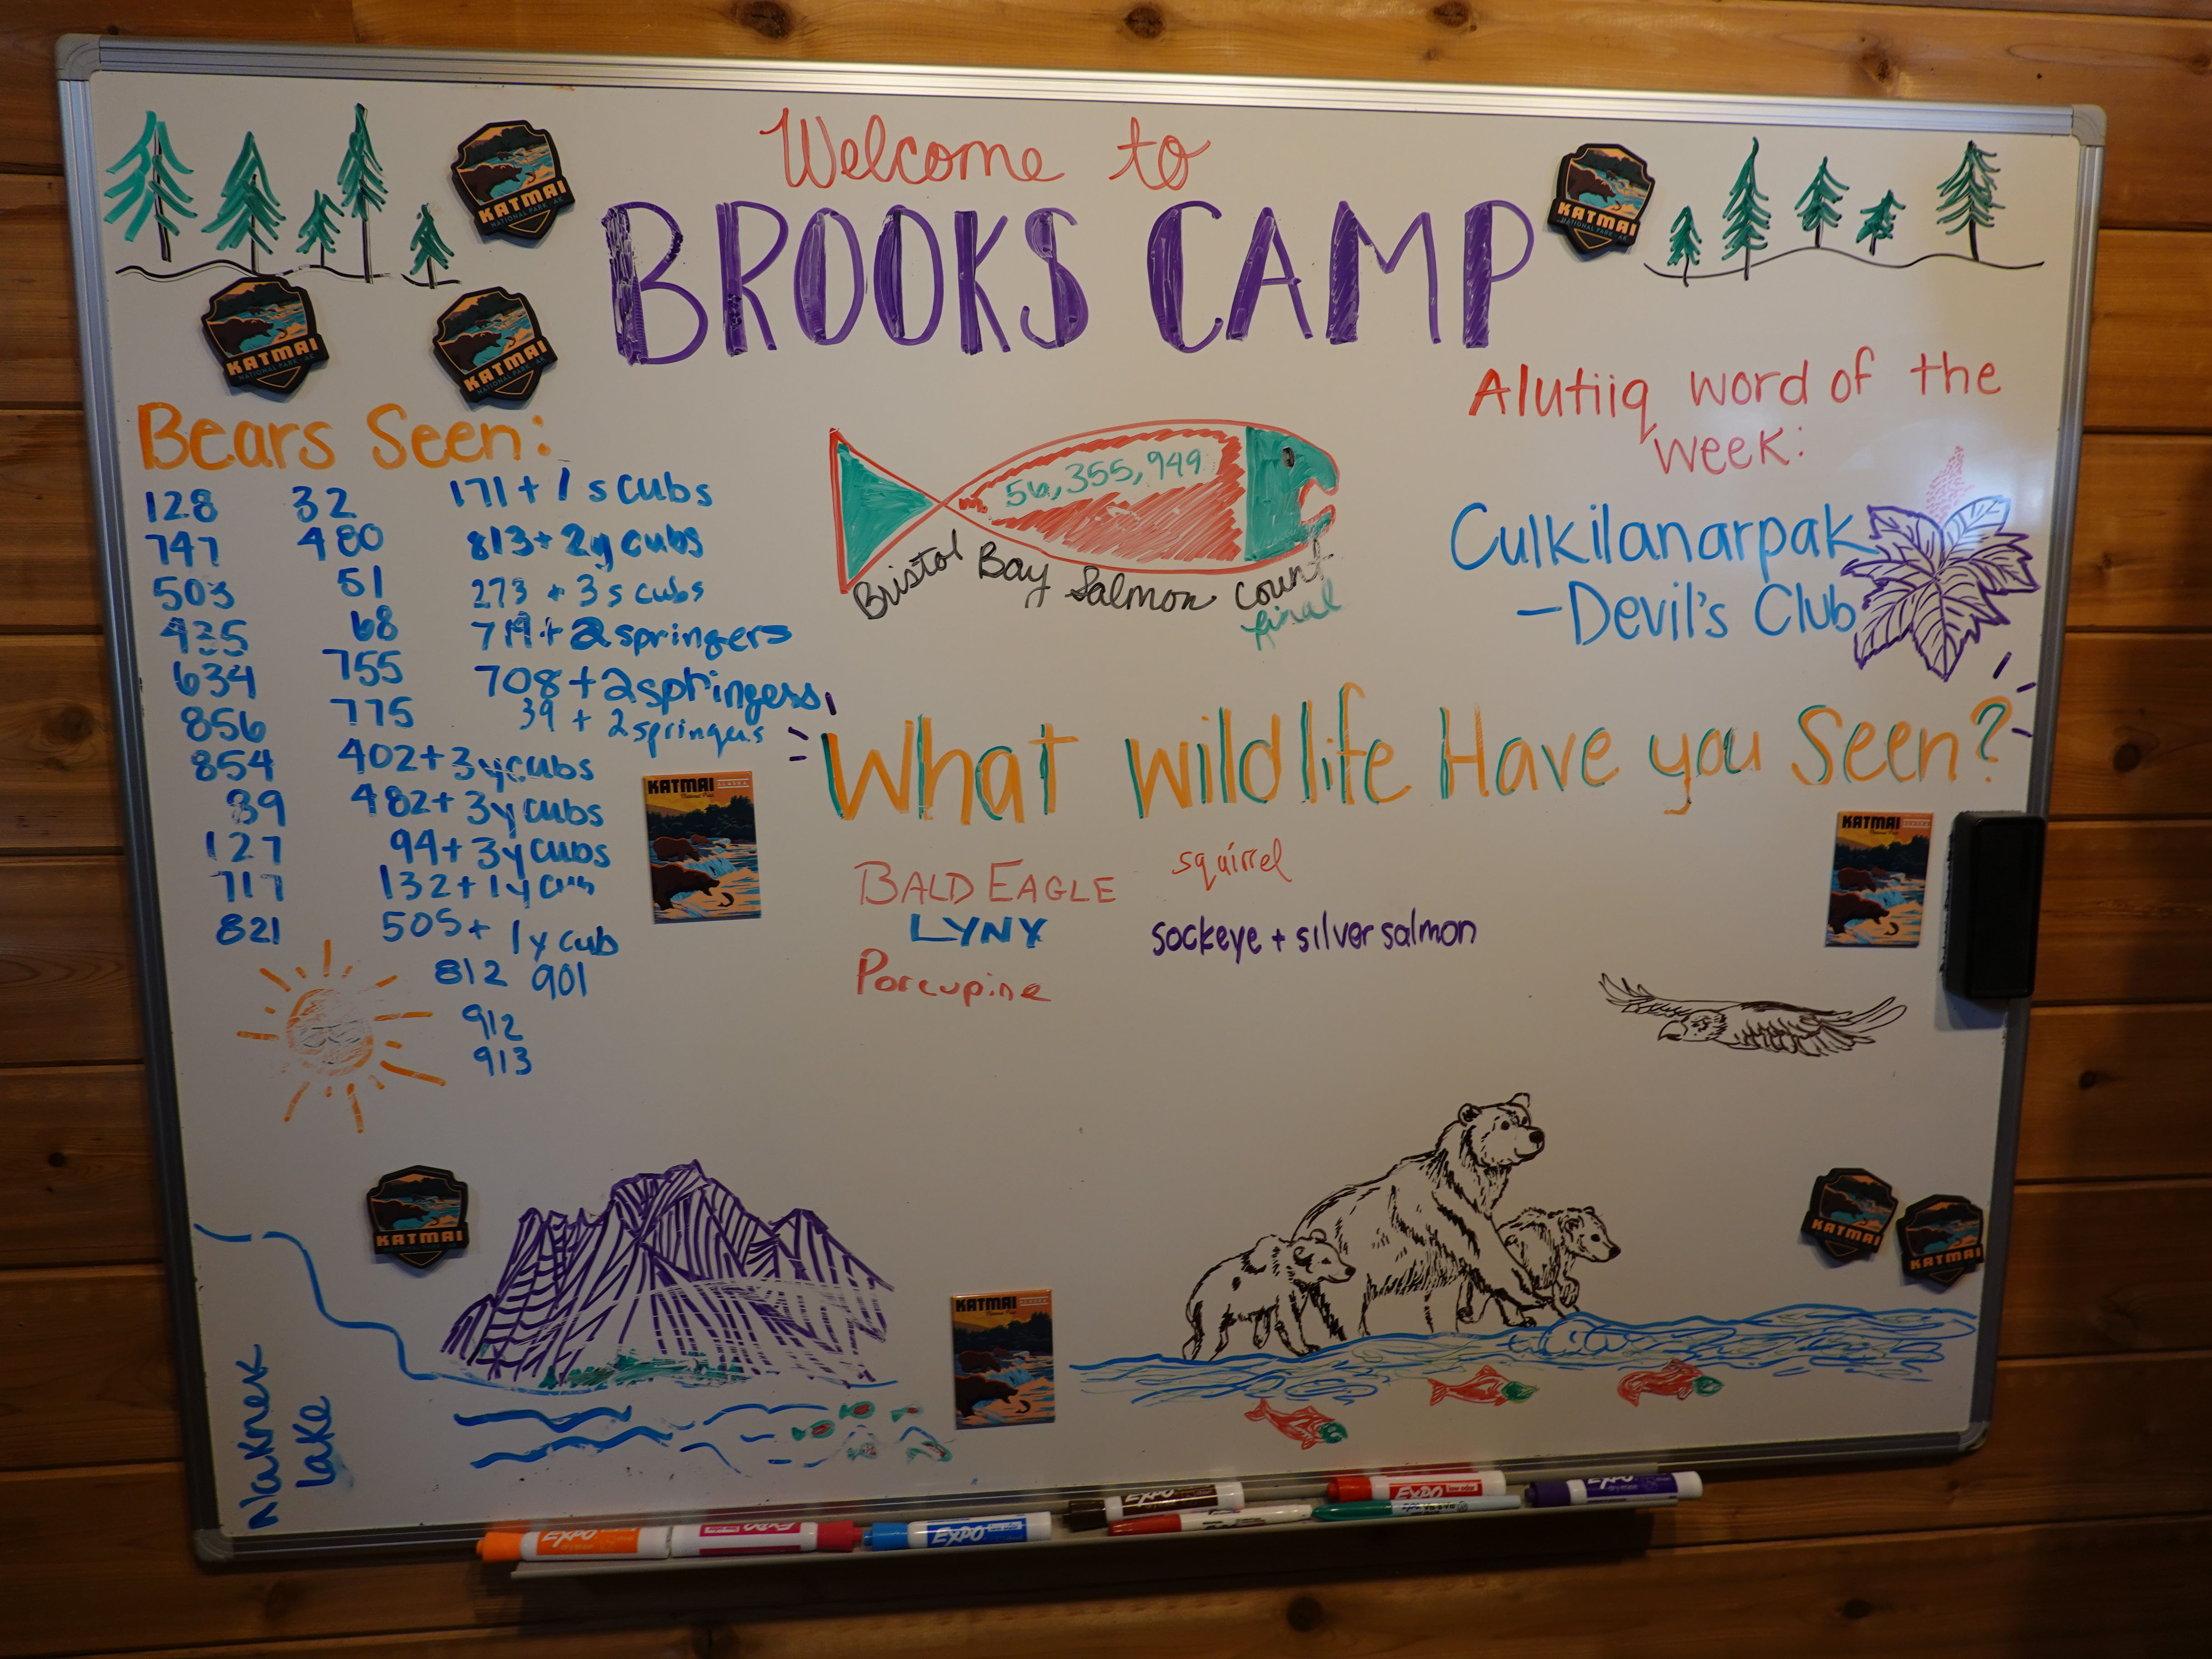 Welcome to
BROOKS CAMP
KATMAI
NATIONAL PARK · AK
KATMAI
NATIONAL PARK · AK
KATMAI
NATIONAL PARK · AK
KATMAI
NATIONAL PARK · AK
Bears Seen:
128 32 171 + 1 s cubs
747 480 813 + 2y cubs
503 51 273 + 3 s cubs
435 68 719 + 2 springers
634 755 708 + 2 springers
856 775 39 + 2 springers
854 402 + 3y cubs
89 482 + 3y cubs
127 94 + 3y cubs
717 132 + 1y cub
821 505 + 1y cub
812 901
912
913
56,355,949
Bristol Bay Salmon Count
final
Alutiiq word of the
week:
Culkilanarpak
– Devil's Club
What wildlife Have you Seen?
BALD EAGLE squirrel
LYNY sockeye + silver salmon
Porcupine
KATMAI
KATMAI
KATMAI
KATMAI
KATMAI
KATMAI
Naknek
Lake
EXPO
EXPO
EXPO
EXPO
EXPO
EXPO